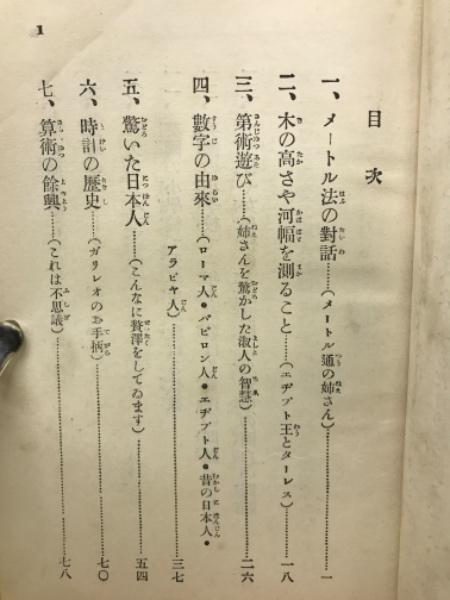 目次
一、メートル法の對話……(メートル通の姉さん)……一
二、木の高さや河幅を測ること……(エヂプト王とターレス)……一八
三、算術遊び……(姉さんを驚かした淑人の智慧)……二六
四、數字の由來……(ローマ人・バビロン人・エヂプト人・昔の日本人・
アラビヤ人)……三七
五、驚いた日本人……(こんなに贅澤をしてゐます)……五四
六、時計の歷史……(ガリレオのお手柄)……七〇
七、算術の餘興……(これは不思議)……七八
1